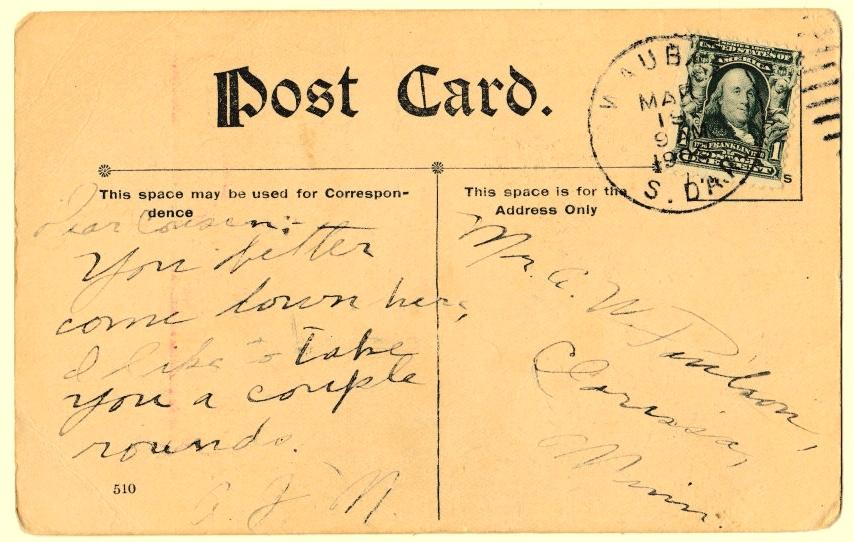 Post Card.
WAUB
MAR
19
9 AM
190
S. DAK
SERIES 1902
UNITED STATES OF
AMERICA
FRANKLIN
1
ONE CENT
This space may be used for Correspon-
dence
This space is for the
Address Only
s
Dear Cousin:
You better
come down here,
I like to take
you a couple
rounds.
A. J. N.
Mr. A. W. Paulson,
Clarissa,
Minn.
510